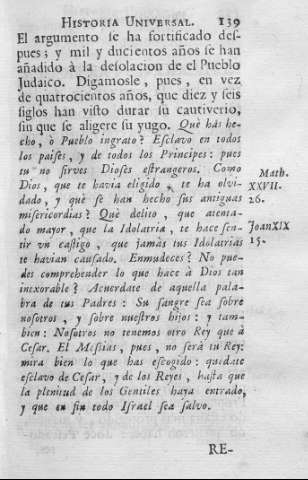 HISTORIA UNIVERSAL. 139
El argumento se ha fortificado des-
pues; y mil y ducientos años se han
añadido à la desolacion de el Pueblo
Judaico. Digamosle, pues, en vez
de quatrocientos años, que diez y seis
siglos han visto durar su cautiverio,
sin que se aligere su yugo. Què hàs he-
cho, ò Pueblo ingrato? Esclavo en todos
los paises, y de todos los Principes: pues
tu no sirves Dioses estrangeros. Como
Math.
Dios, que te havia eligido, te ha olvi-
XXVII.
dado, y què se han hecho sus antiguas
26.
misericordias? Què delito, que atenta-
do mayor, que la Idolatria, te hace sen-
JoanXIX
tir vn castigo, que jamàs tus Idolatrias
15.
te havian causado. Enmudeces? No pue-
des comprehender lo que hace à Dios tan
inexorable? Acuerdate de aquella pala-
bra de tus Padres: Su sangre sea sobre
nosotros, y sobre nuestros hijos: y tam-
bien: Nosotros no tenemos otro Rey que à
Cesar. El Messias, pues, no serà tu Rey:
mira bien lo que has escogido: quedate
esclavo de Cesar, y de los Reyes, hasta que
la plenitud de los Gentiles haya entrado,
y que en fin todo Israel sea salvo.
RE-